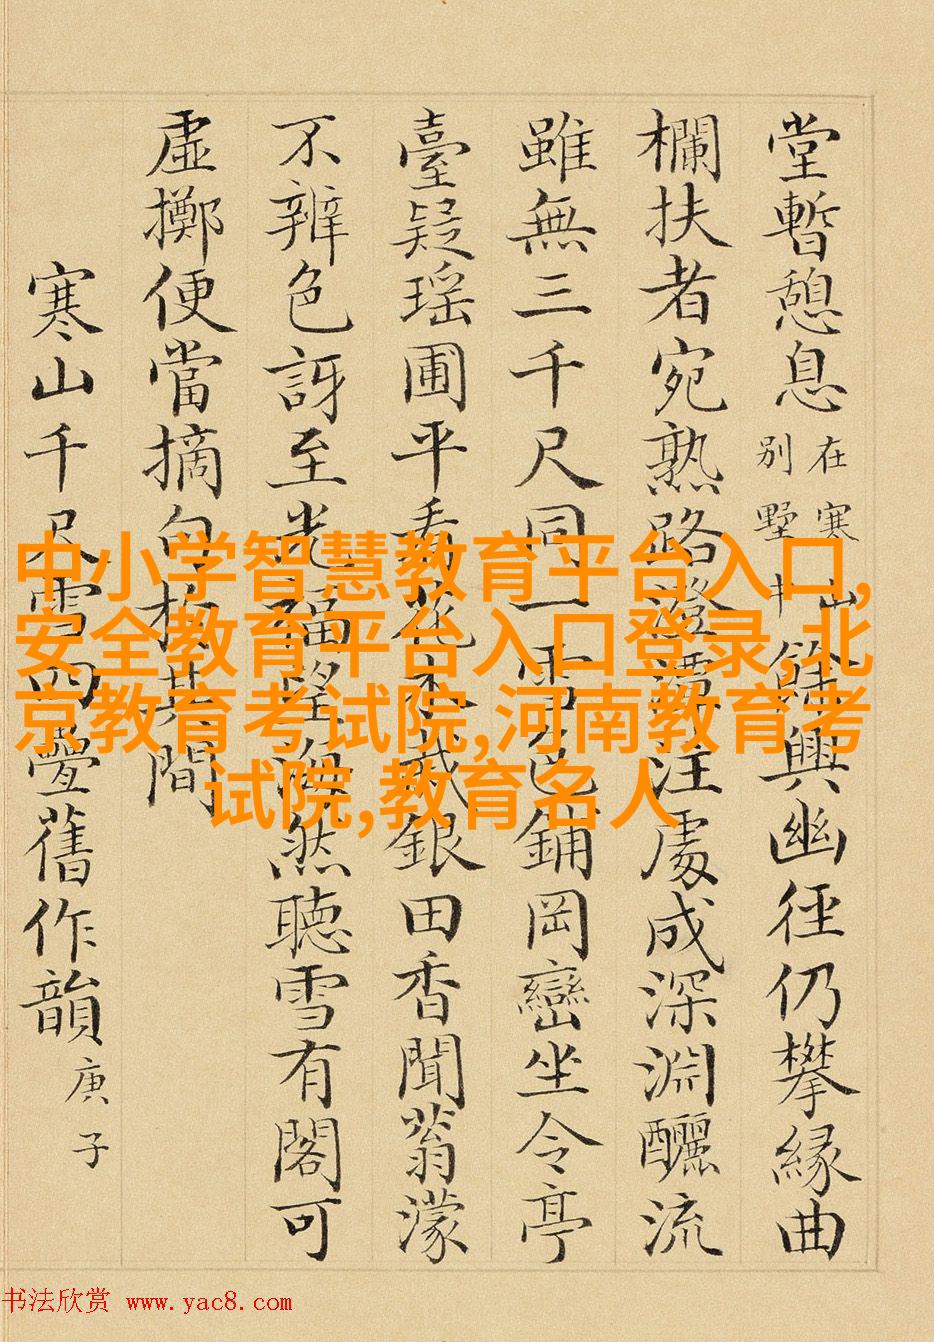 堂暫憩息在寒山別墅中餘興幽徑仍攀緣曲
欄扶者宛熟路澄潭注處成深淵釃流
雖無三千尺同一雪色鋪岡巒坐令亭
臺疑瑤圃平看花木成銀田香聞蓊濛
不辨色訝至光福望然聽雪有閣可
虛擲便當摘句其間
寒山千尺雪四疊舊作韻庚子
中小学智慧教育平台入口,
安全教育平台入口登录,北
京教育考试院,河南教育考
试院,教育名人
书法欣赏 www.yac8.com